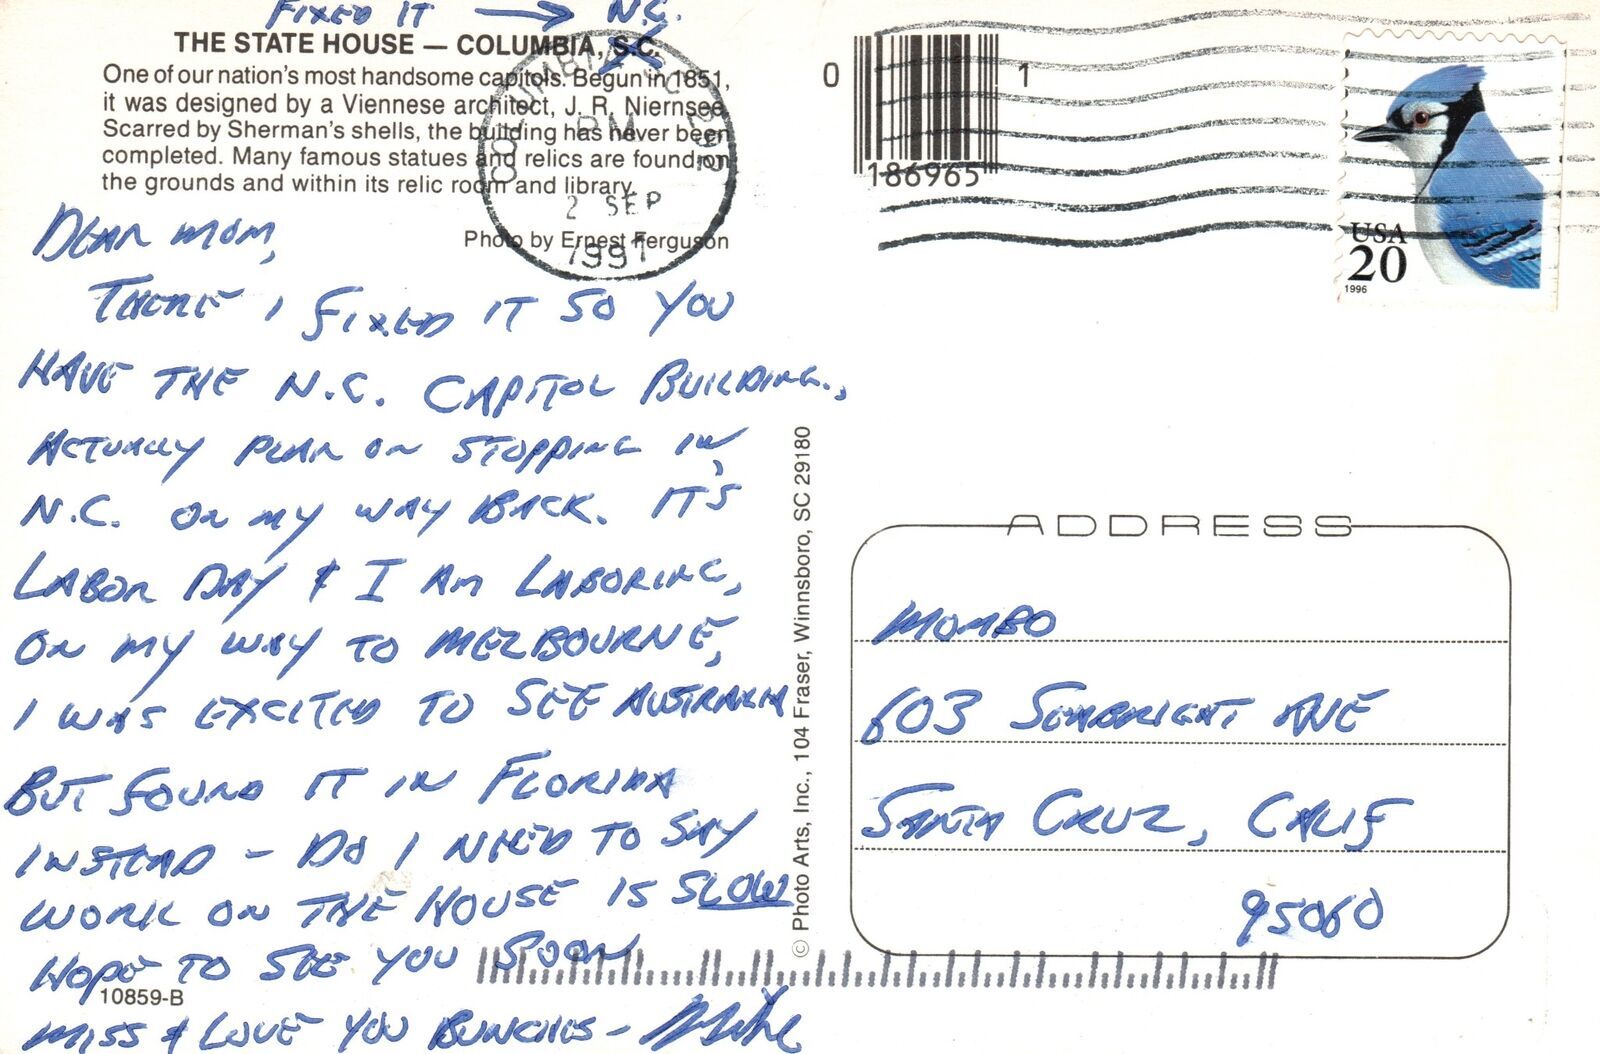 FIXED IT → N.C.
THE STATE HOUSE — COLUMBIA, S.C.
One of our nation's most handsome capitols. Begun in 1851,
it was designed by a Viennese architect, J. R. Niernsee.
Scarred by Sherman's shells, the building has never been
completed. Many famous statues and relics are found on
the grounds and within its relic room and library.
Photo by Ernest Ferguson
COLUMBIA
PM
2 SEP
1997
0 1
186965
USA
20
1996
DEAR MOM,
THERE, I FIXED IT SO YOU
HAVE THE N.C. CAPITOL BUILDING.,
ACTUALLY PLAN ON STOPPING IN,
N.C. ON MY WAY BACK. IT'S
LABOR DAY & I AM LABORING,
ON MY WAY TO MELBOURNE,
I WAS EXCITED TO SEE AUSTRALIA
BUT FOUND IT IN FLORIDA
INSTEAD – DO I NEED TO SAY
WORK ON THE HOUSE IS SLOW
HOPE TO SEE YOU SOON
10859-B
MISS & LOVE YOU BUNCHES – Mike
© Photo Arts, Inc., 104 Fraser, Winnsboro, SC 29180
ADDRESS
MOMBO
603 SEABRIGHT AVE
SANTA CRUZ, CALIF
95060